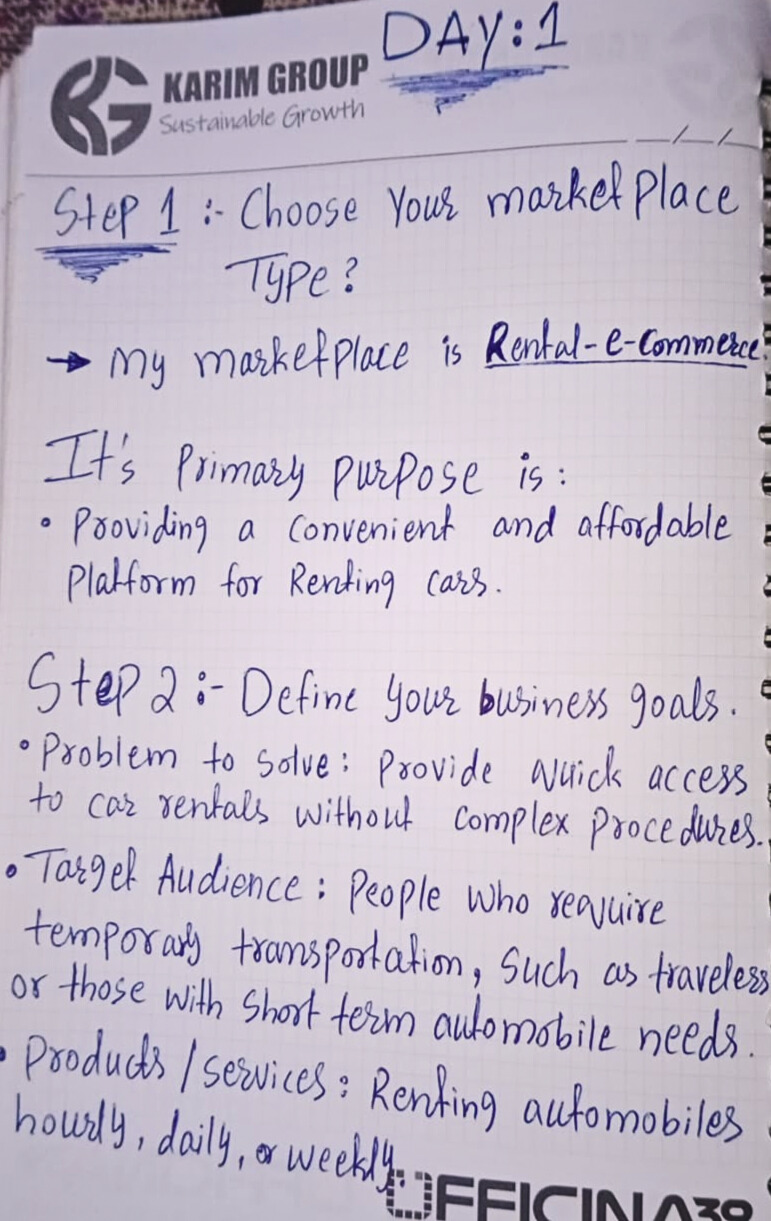 DAY:1
KARIM GROUP
Sustainable Growth
Step 1 :- Choose Your marketplace
Type?
→ My marketplace is Rental-e-Commerce.
It's Primary Purpose is:
• Providing a convenient and affordable
Platform for Renting cars.
Step 2 :- Define your business goals.
• Problem to solve: Provide quick access
to car rentals without complex procedures.
• Target Audience: People who require
temporary transportation, such as traveless
or those with short term automobile needs.
• Products/services: Renting automobiles
hourly, daily, or weekly.
OFFICINA39